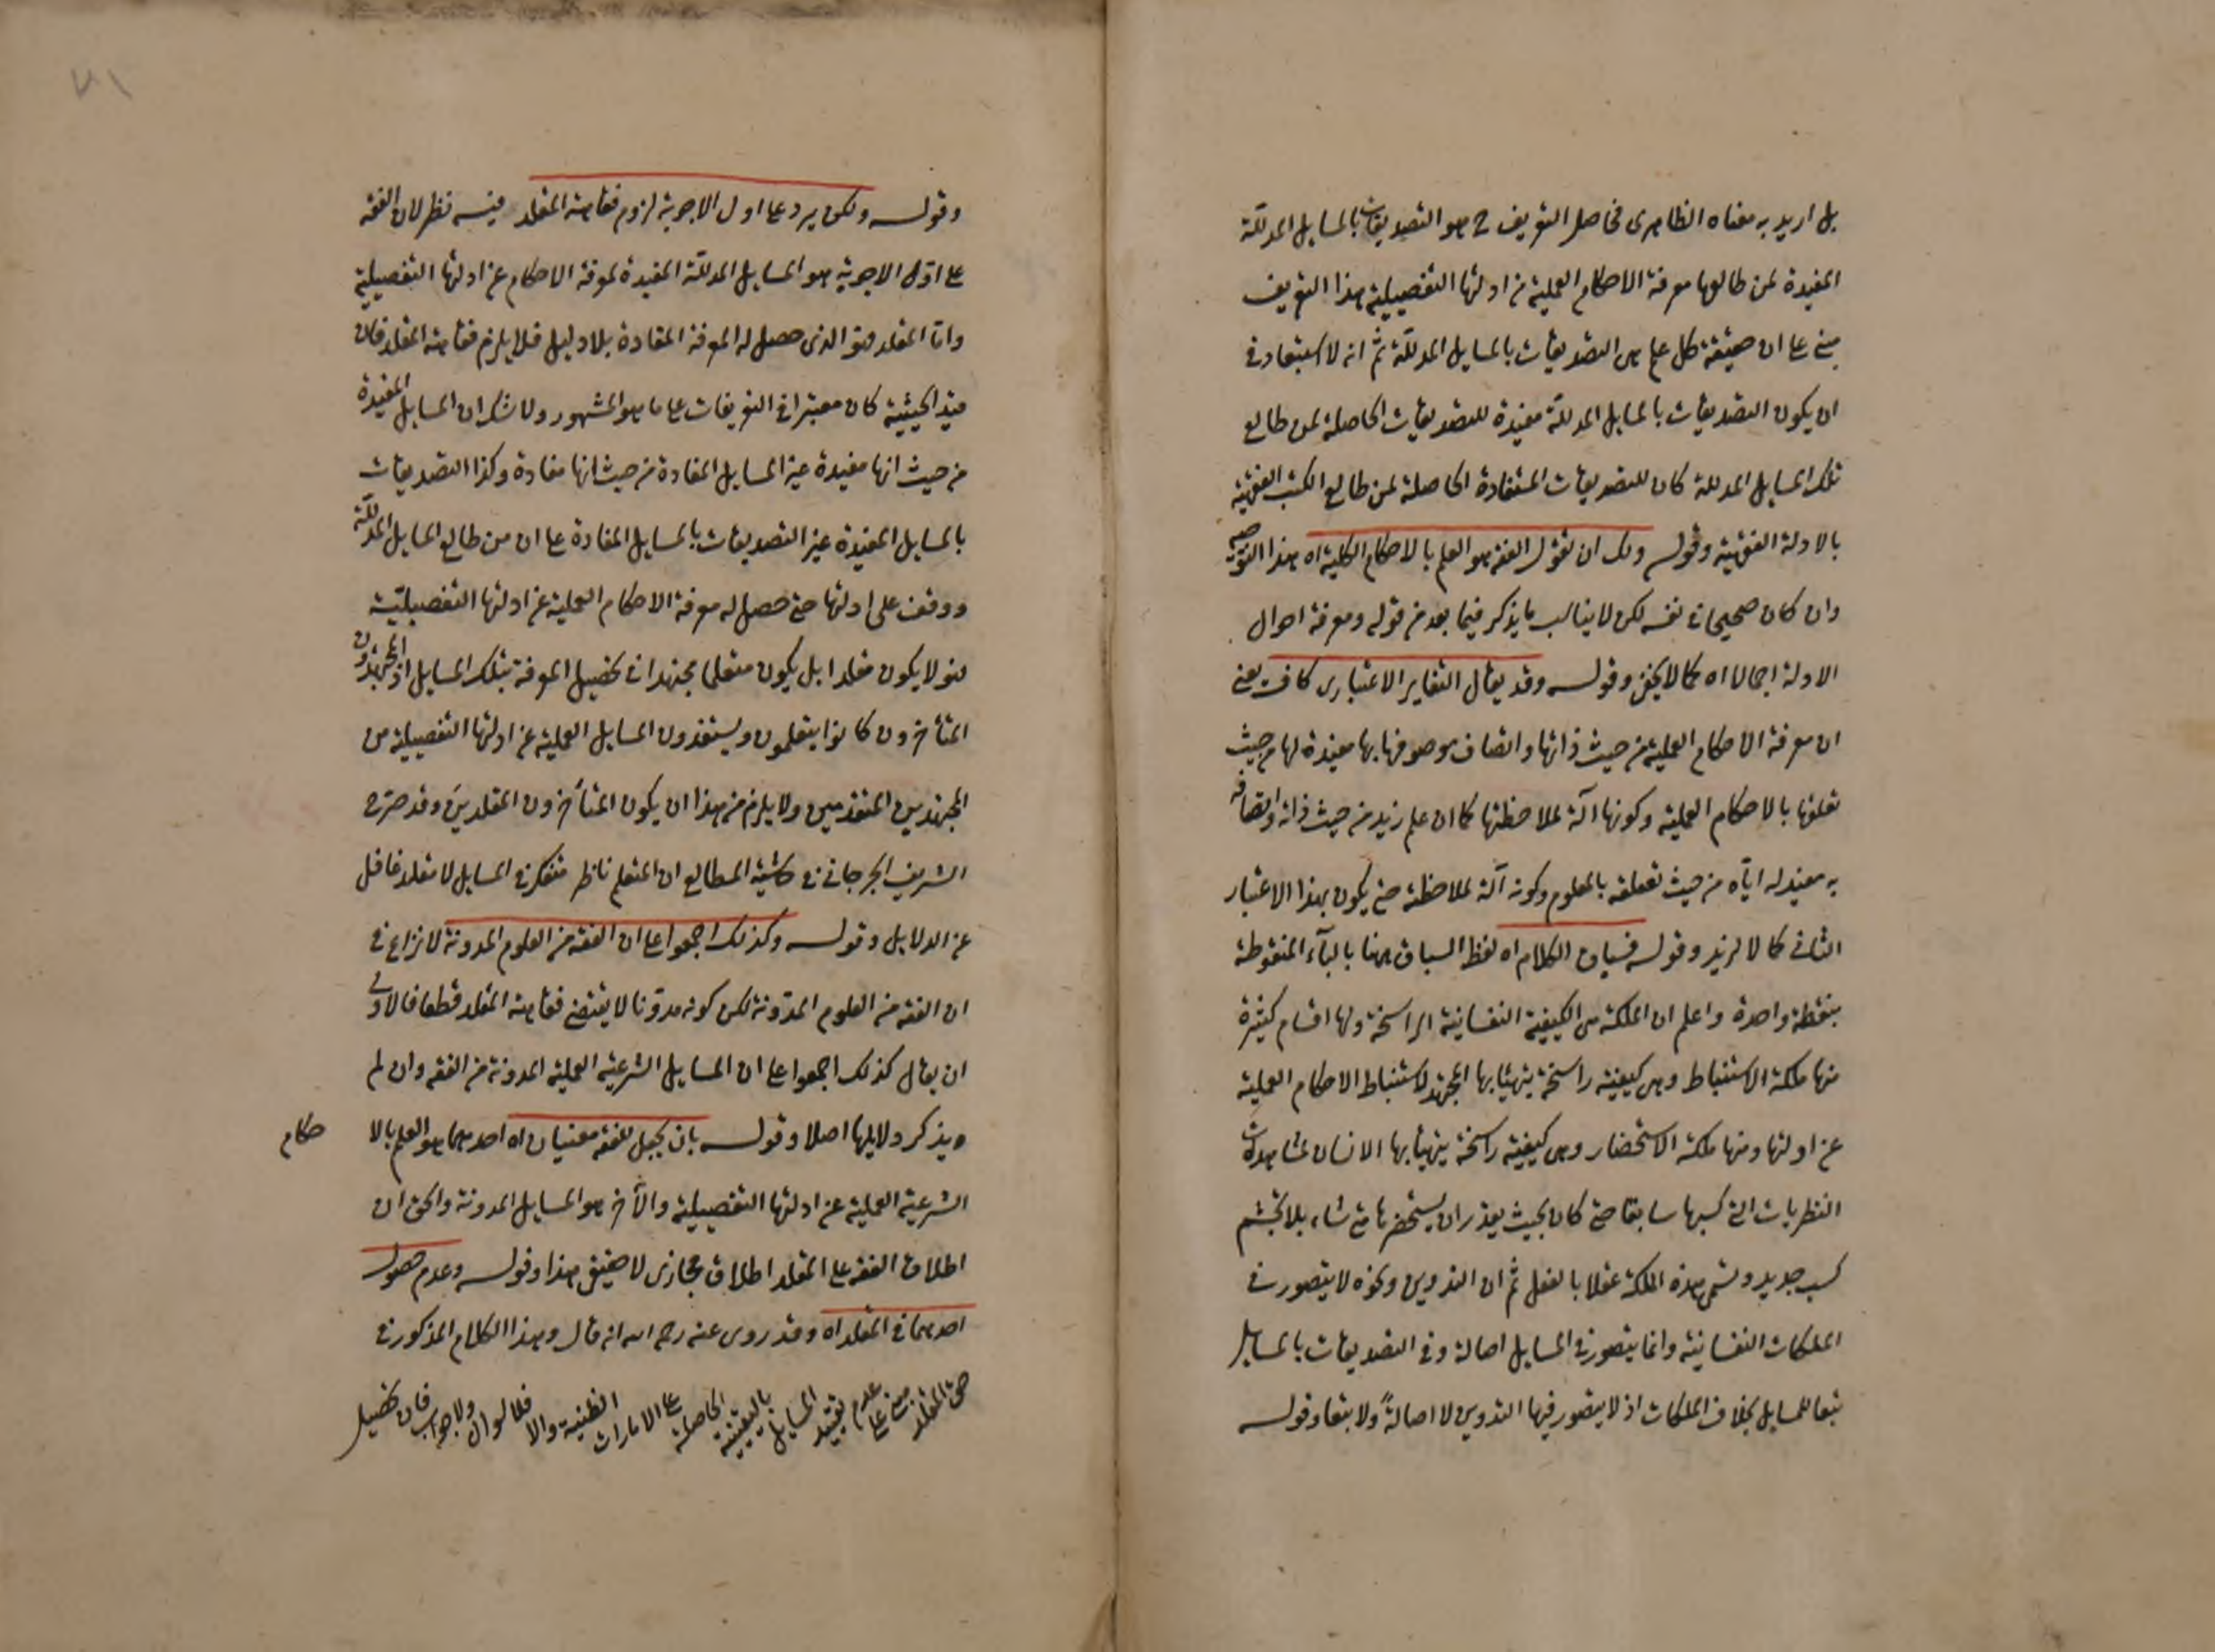 بل اريد به معناه الظاهرى فحاصل التعريف ح هو التصديقات بالمسايل المدللة
المفيدة لمن طالعها معرفة الاحكام العملية من ادلتها التفصيلية هذا التعريف
مبنى على ان حقيقة كل علم هى التصديقات بالمسايل المدللة ثم انه لا استبعاد فى
ان يكون التصديقات بالمسايل المدللة مفيدة للتصديقات الحاصلة لمن طالع
تلك المسايل المدللة كان للتصديقات المستفادة الحاصلة لمن طالع الكتب الفقهية
بالادلة الفقهية وقوله ولك ان تقول الفقه هو العلم بالاحكام الكلية اه هذا التوجيه
وان كان صحيحا فى نفسه لكن لا يناسب ما يذكر فيما بعد من قوله ومعرفة احوال
الادلة اجمالا اه كما لا يخفى وقوله وقد يقال التغاير الاعتبارى كاف يعنى
ان معرفة الاحكام العملية من حيث ذاتها واتصاف موصوفها بها مفيدة لها من حيث
تعلقها بالاحكام العملية وكونها آلة لملاحظتها كما ان علم زيد من حيث ذاته واتصافه
به مفيد له اياه من حيث تعلقه بالمعلوم وكونه آلة لملاحظته حتى يكون بهذا الاعتبار
الثانى كمالا لزيد وقوله فسياق الكلام اه لفظ السباق ههنا بالبآء المنقوطة
بنقطة واحدة واعلم ان الملكة هى الكيفية النفسانية الراسخة ولها اقسام كثيرة
منها ملكة الاستنباط وهى كيفية راسخة يتهيئا بها المجتهد لاستنباط الاحكام العملية
عن ادلتها ومنها ملكة الاستحضار وهى كيفية راسخة يتهيئا بها الانسان لمشاهدات
النظريات التى كسبها سابقا حتى كان بحيث يقدر ان يستحضرها متى شاء بلا تجشم
كسب جديد وتسمى هذه الملكة عقلا بالفعل ثم ان التدوين ونحوه لا يتصور فى
الملكات النفسانية وانما يتصور فى المسايل اصالة وفى التصديقات بالمسايل
تبعا للمسايل بخلاف الملكات اذ لا يتصور فيها التدوين لا اصالةً ولا تبعا وقوله
٧١
وقوله ولكن يرد على اول الاجوبة لزوم فقاهة المقلد فيه نظر لان الفقه
على اوّل الاجوبة هو المسايل المدللة المفيدة لمعرفة الاحكام عن ادلتها التفصيلية
وامّا المقلد فهو الذى حصل له المعرفة المفادة بلا دليل فلا يلزم فقاهة المقلد فان
قيد الحيثية كان معتبرا فى التعريفات على ما هو المشهور ولا شك ان المسايل المفيدة
من حيث انها مفيدة غير المسايل المفادة من حيث انها مفادة وكذا التصديقات
بالمسايل المفيدة غير التصديقات بالمسايل المفادة على ان من طالع المسايل المدللة
ووقف على ادلتها حتى حصل له معرفة الاحكام العملية عن ادلتها التفصيليّة
فهو لا يكون مقلدا بل يكون متعلما مجتهدا فى تحصيل المعرفة بتلك المسايل اذ المجتهدون
المتأخرون كانوا يتعلمون ويستفيدون المسايل العملية عن ادلتها التفصيلية من
المجتهدين المتقدمين ولا يلزم من هذا ان يكون المتأخرون المقلدين وقد صرح
الشريف الجرجانى فى حاشية المطالع ان المتعلم ناظر متفكر فى المسايل لا مقلد غافل
عن الدلايل وقوله وكذلك اجمعوا على ان الفقه من العلوم المدونة لا نزاع فى
ان الفقه من العلوم المدوّنة لكن كونه مدوّنا لا يقتضى فقاهة المقلد قطعا فالاولى
ان يقال كذلك اجمعوا على ان المسايل الشرعية العملية المدونة من الفقه وان لم
ه يذكر دلايلها اصلا وقوله بان يجعل للفقه معنيان اه احدهما هو العلم بالا حكام
الشرعية العملية عن ادلتها التفصيلية والآخر هو المسايل المدونة والحق ان
اطلاق الفقه على المقلد اطلاق مجازى لا حقيقى هذا وقوله وعدم حصول
احدهما فى المقلد اه وقد روى عنه رحمه الله انه قال وهذا الكلام المذكور فى
حق المقلد مبنى على عدم تقييد المسايل باليقينية الحاصلة على الامارات الظنية والا فلا سوال ولا جواب فان تحصيل